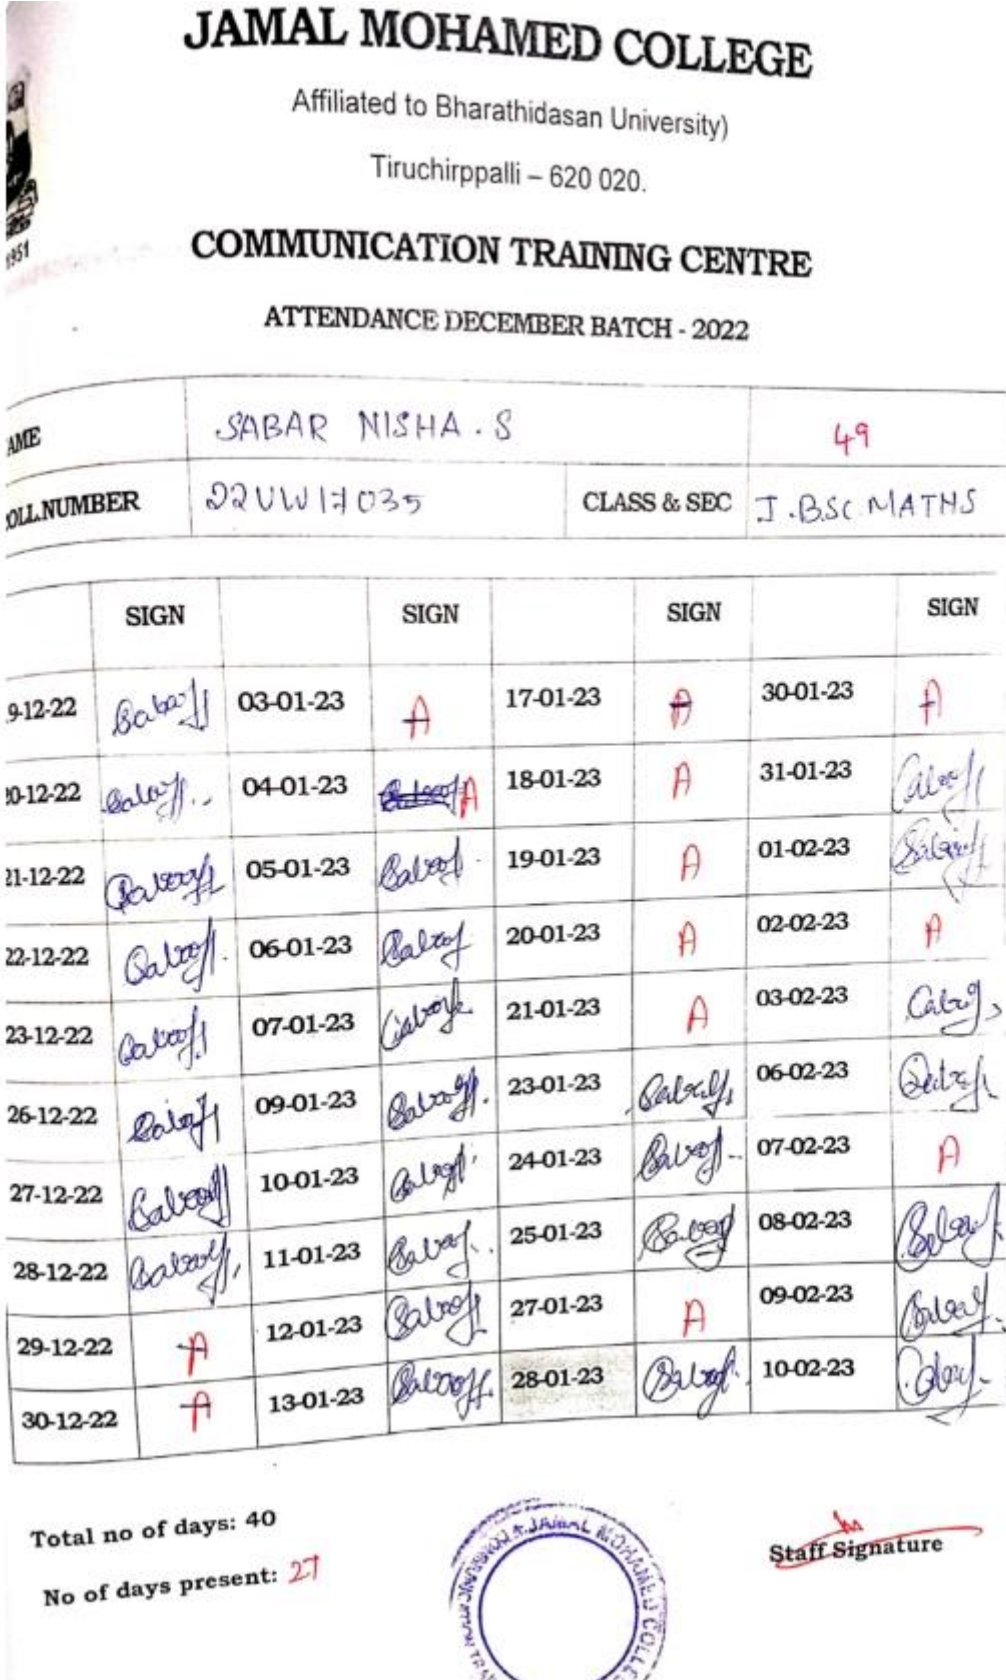 JAMAL MOHAMED COLLEGE
Affiliated to Bharathidasan University)
Tiruchirppalli – 620 020.
1951
COMMUNICATION TRAINING CENTRE
ATTENDANCE DECEMBER BATCH - 2022
AME SABAR NISHA . S 49
OLL.NUMBER 22UW17035 CLASS & SEC I . BSC MATHS
SIGN SIGN SIGN SIGN
9-12-22 03-01-23 A 17-01-23 A 30-01-23 A
20-12-22 04-01-23 A 18-01-23 A 31-01-23
21-12-22 05-01-23 19-01-23 A 01-02-23
22-12-22 06-01-23 20-01-23 A 02-02-23 A
23-12-22 07-01-23 21-01-23 A 03-02-23
26-12-22 09-01-23 23-01-23 06-02-23
27-12-22 10-01-23 24-01-23 07-02-23 A
28-12-22 11-01-23 25-01-23 08-02-23
29-12-22 A 12-01-23 27-01-23 A 09-02-23
30-12-22 A 13-01-23 28-01-23 10-02-23
Total no of days: 40
No of days present: 27
Staff Signature
JAMAL MOHAMED COLLE